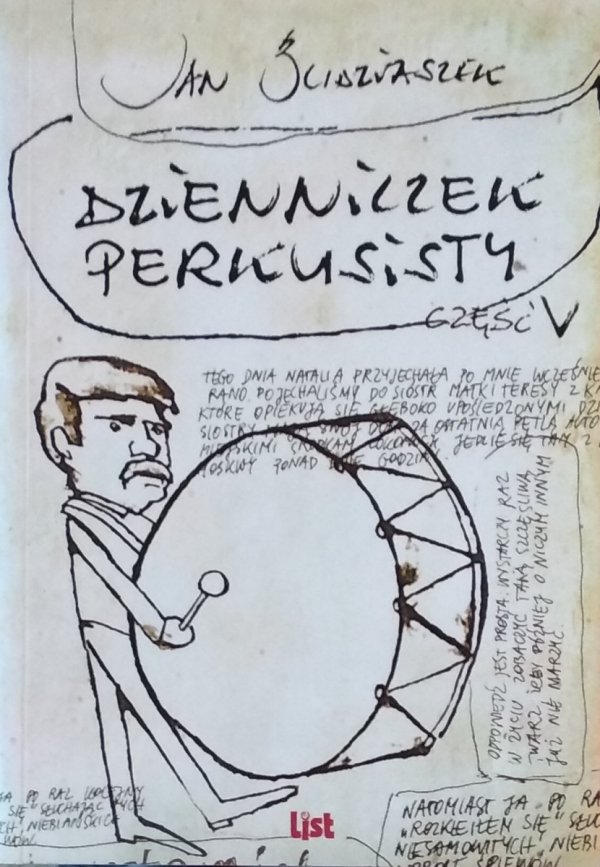 JAN ŚLIDZIASZEK
DZIENNICZEK
PERKUSISTY
CZĘŚĆ V
TEGO DNIA NATALIA PRZYJECHAŁA PO MNIE WCZEŚNIE
RANO. POJECHALIŚMY DO SIÓSTR MATKI TERESY Z
KTÓRE OPIEKUJĄ SIĘ GŁĘBOKO UPOŚLEDZONYMI
SIOSTRY MAJĄ SWÓJ DOM ZA OSTATNIĄ PĘTLĄ
MIEJSKIMI JEDZIE SIĘ TAM Z
MOSKWY PONAD DWIE GODZINY
ODPOWIEDŹ JEST PROSTA. WYSTARCZY RAZ
W ŻYCIU ZOBACZYĆ TAKĄ SZCZĘŚLIWĄ
TWARZ, ŻEBY PÓŹNIEJ O NICZYM INNYM
JUŻ NIE MARZYĆ
PO RAZ
SIĘ" SŁUCHAJĄC TYCH
NIEBIAŃSKICH
list
NATOMIAST JA PO RA
„ROZKLEIŁEM SIĘ" SŁUC
NIESAMOWITYCH, NIEBI